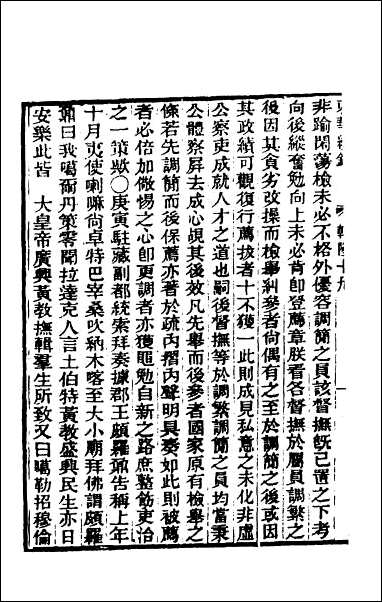 東華續錄　乾隆十九
非踰閑蕩檢未必不格外優容調簡之員該督撫旣已置之下考
向後縱奮勉向上未必肯卽登薦章朕看各督撫於屬員調繁之
後因其貪劣改操而檢舉糾參者尙偶有之至於調簡之後或因
其政績可觀復行薦拔者十不獲一此則成見私意之未化非虛
公察吏成就人才之道也嗣後督撫等於調繁調簡之員均當秉
公體察屛去成心覘其後效凡先舉而後參者國家原有檢舉之
條若先調簡而後保薦亦著於疏內摺內聲明具奏如此則被薦
者必倍加儆惕之心卽更調者亦獲黽勉自新之路庶整飭吏治
之一策歟○庚寅駐藏副都統索拜奏據郡王頗羅鼐告稱上年
十月夷使喇嘛尙卓特巴宰桑吹納木喀至大小廟拜佛謂頗羅
鼐曰我噶爾丹策零聞拉達克人言土伯特黃敎盛興民生亦日
安樂此皆　大皇帝廣興黃敎撫輯羣生所致又曰噶勒招穆倫